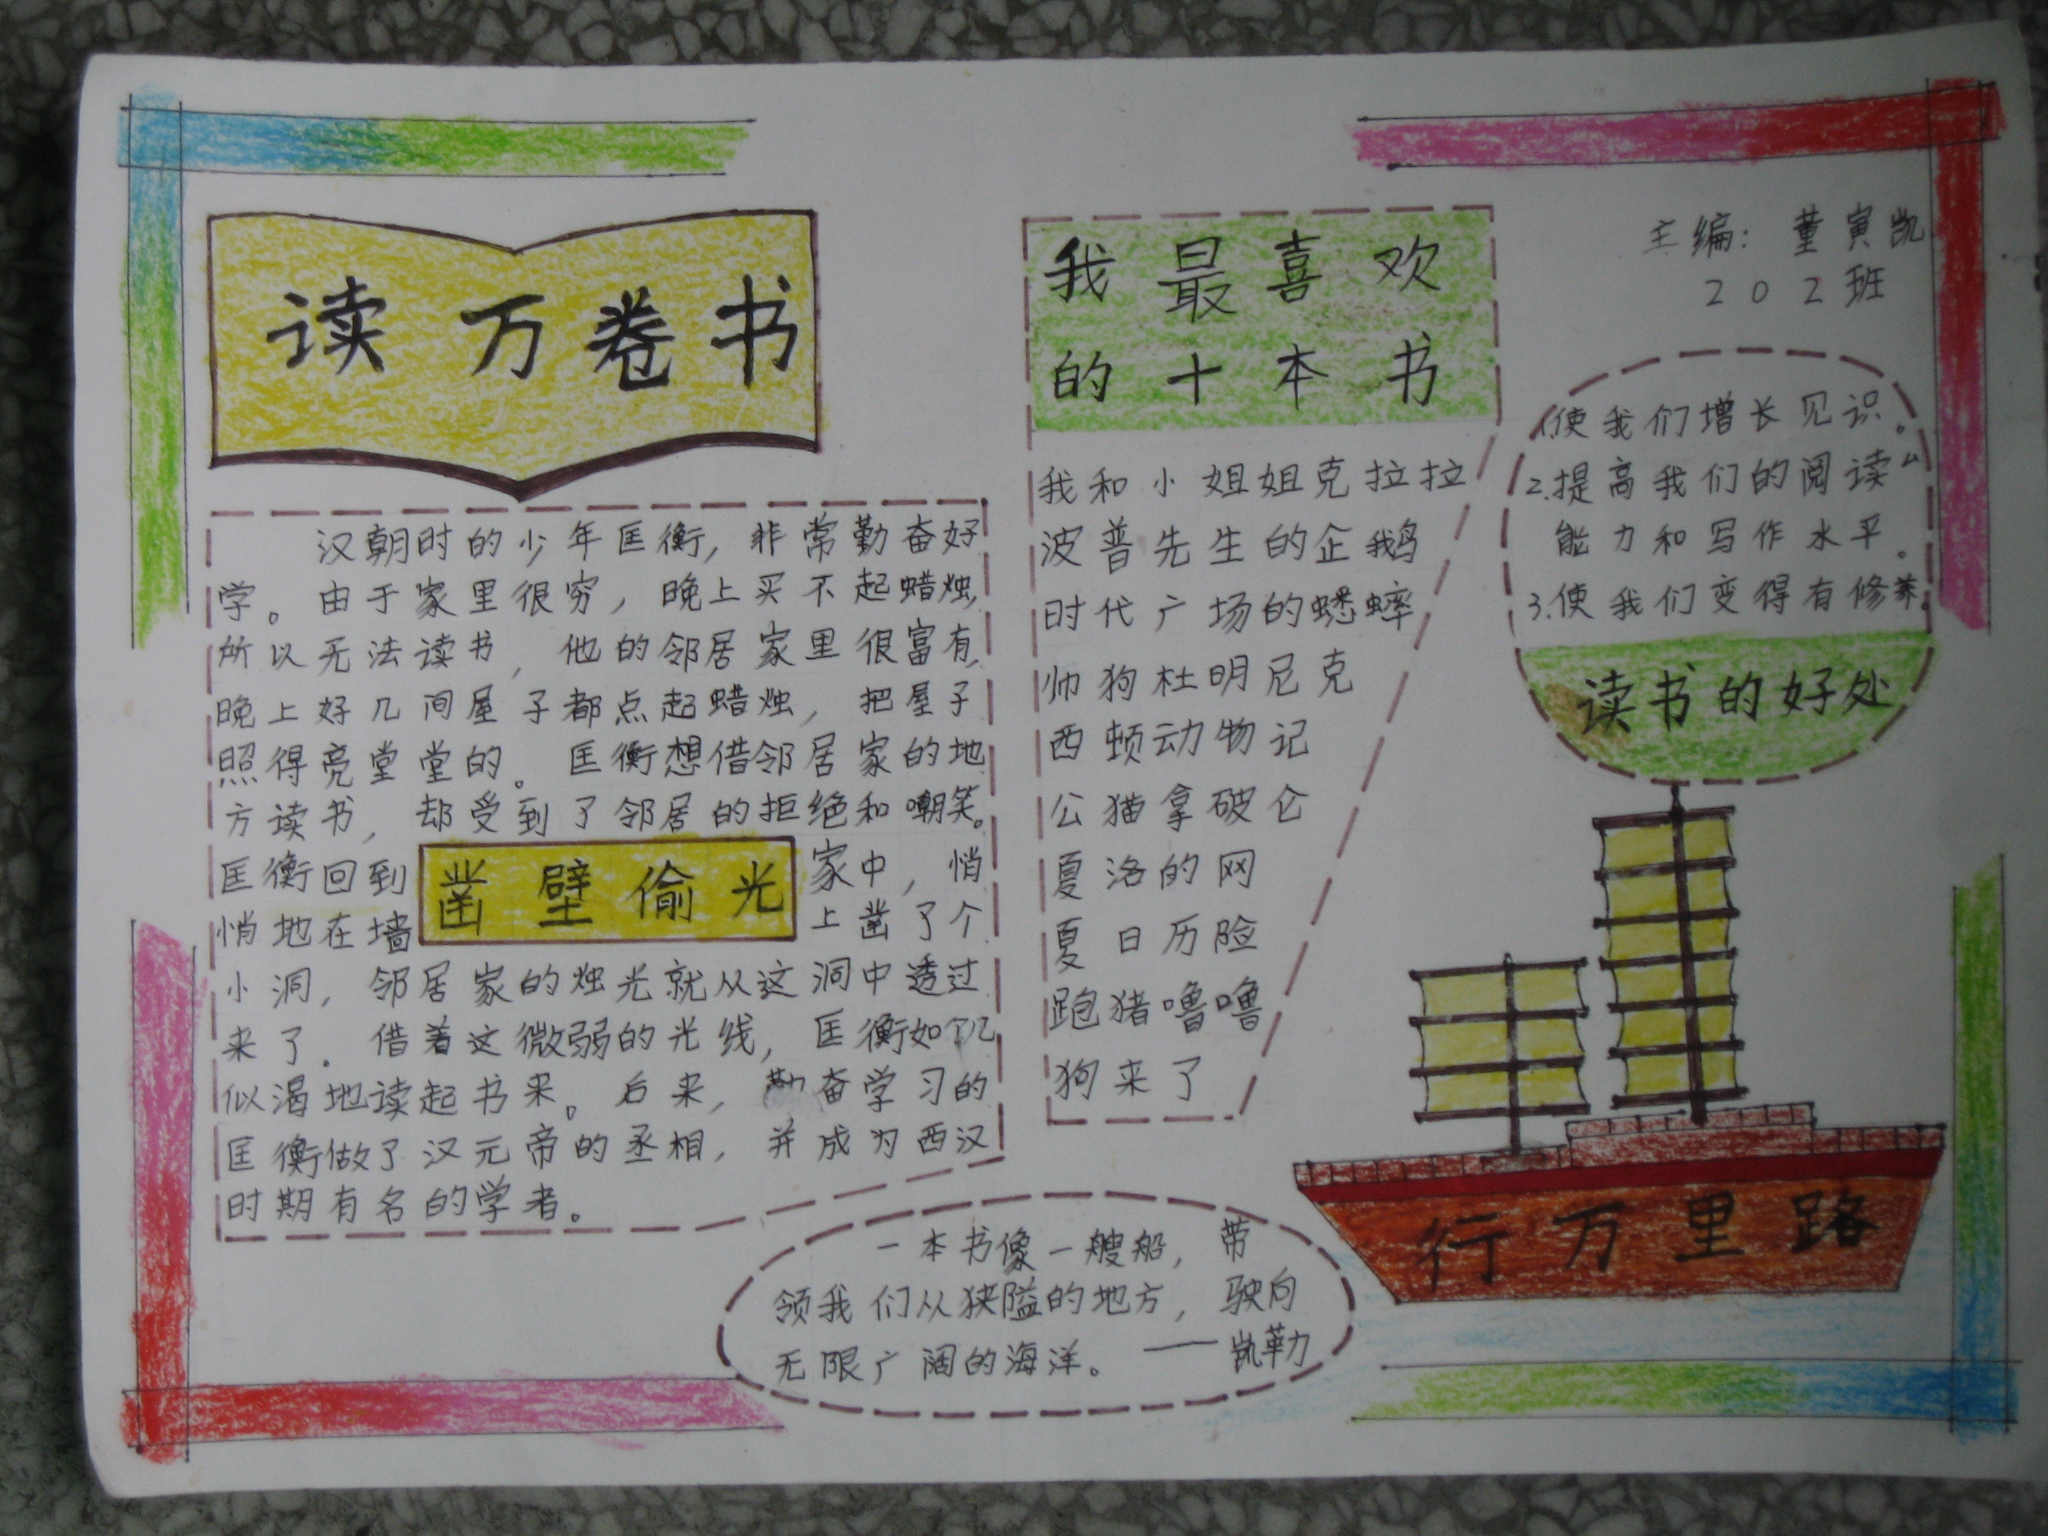 读万卷书
汉朝时的少年匡衡，非常勤奋好
学。由于家里很穷，晚上买不起蜡烛，
所以无法读书，他的邻居家里很富有，
晚上好几间屋子都点起蜡烛，把屋子
照得亮堂堂的。匡衡想借邻居家的地
方读书，却受到了邻居的拒绝和嘲笑。
匡衡回到家中，悄
悄地在墙上凿了个
凿壁偷光
小洞，邻居家的烛光就从这洞中透过
来了。借着这微弱的光线，匡衡如饥
似渴地读起书来。后来，勤奋学习的
匡衡做了汉元帝的丞相，并成为西汉
时期有名的学者。
我最喜欢
的十本书
我和小姐姐克拉拉
波普先生的企鹅
时代广场的蟋蟀
帅狗杜明尼克
西顿动物记
公猫拿破仑
夏洛的网
夏日历险
跑猪噜噜
狗来了
主编：董寅凯
202班
1.使我们增长见识。
2.提高我们的阅读
能力和写作水平。
3.使我们变得有修养。
读书的好处
行万里路
一本书像一艘船，带
领我们从狭隘的地方，驶向
无限广阔的海洋。——凯勒